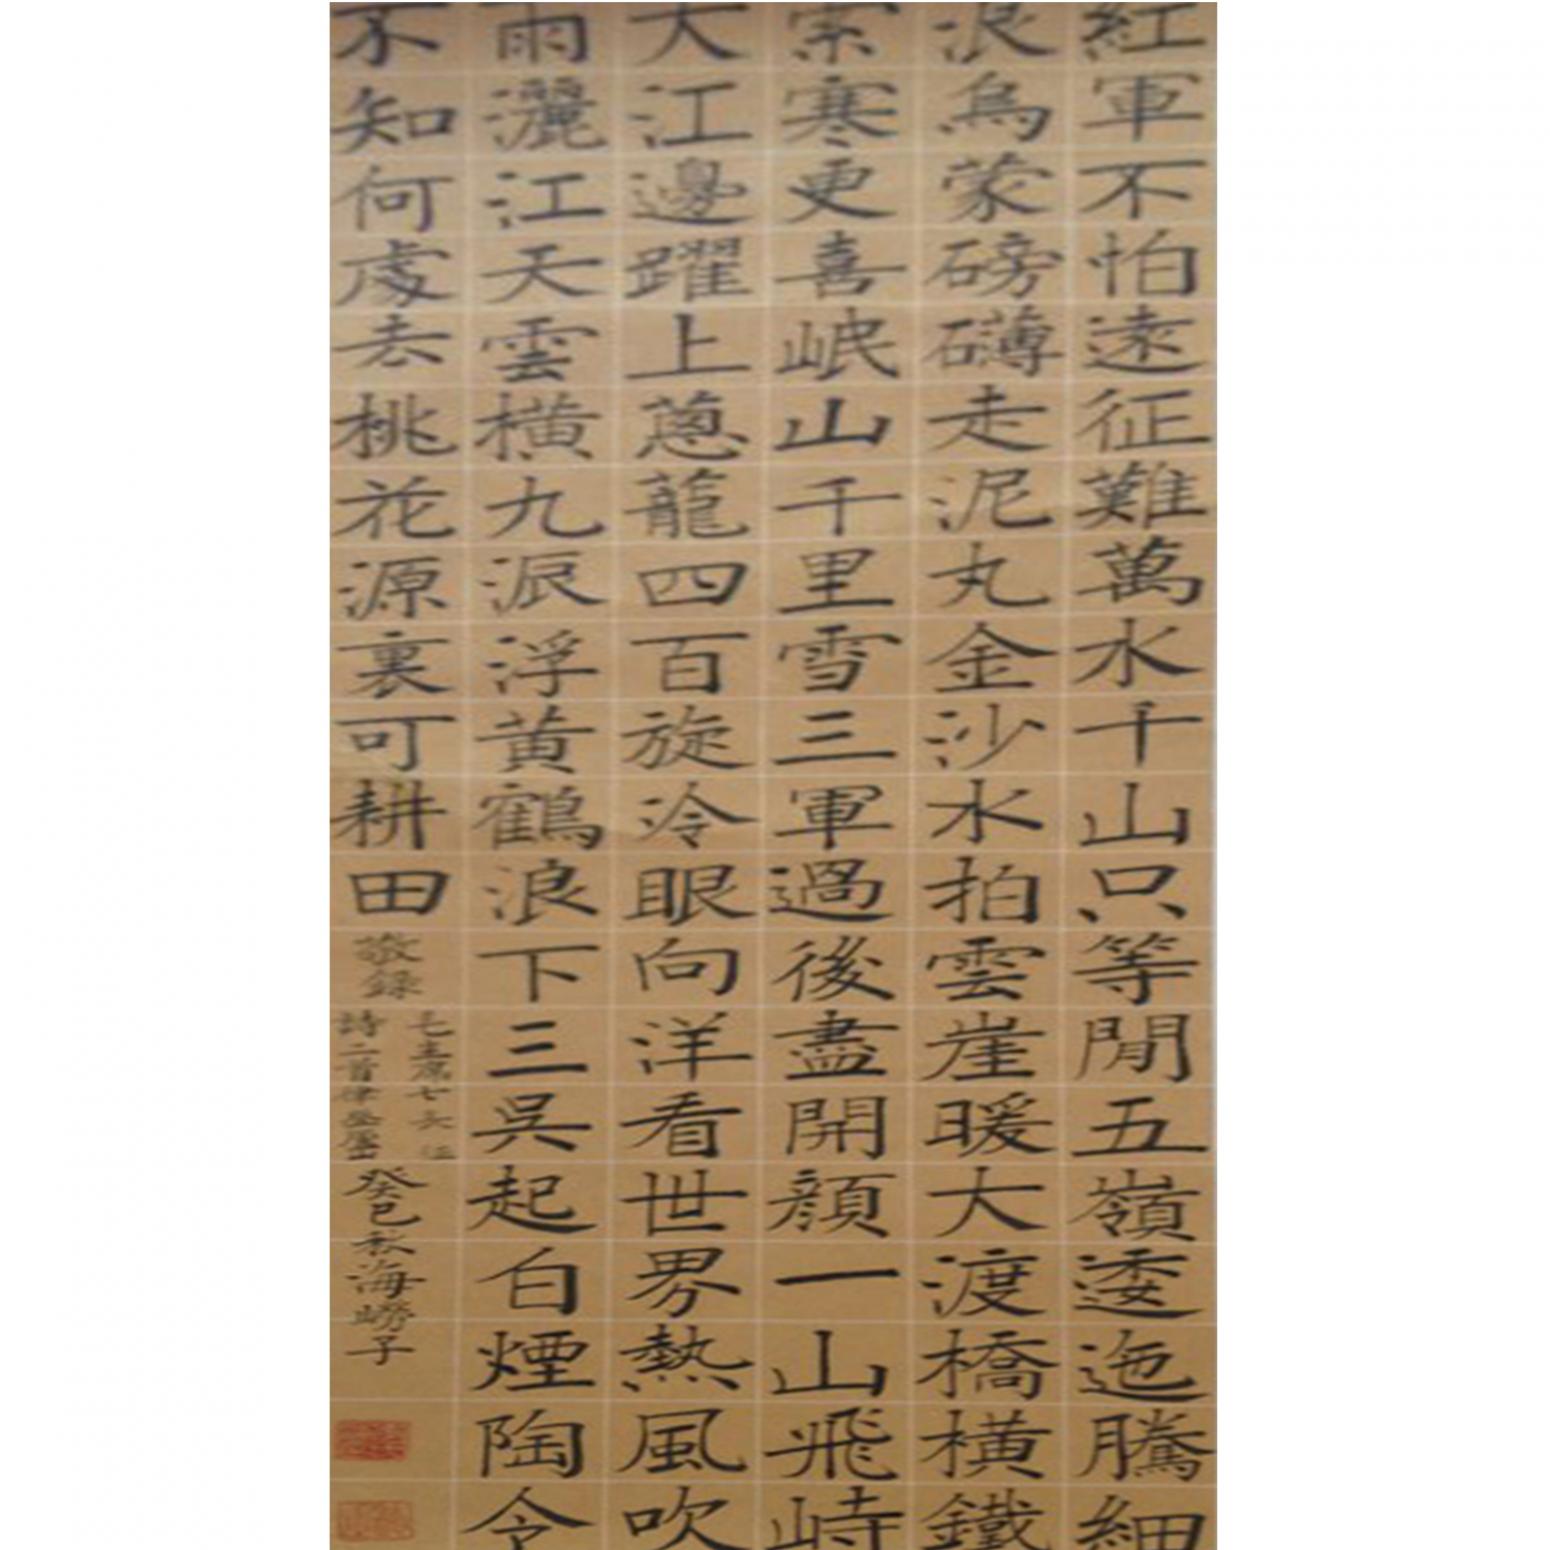 紅軍不怕遠征難萬水千山只等閒五嶺逶迤騰細
浪烏蒙磅礴走泥丸金沙水拍雲崖暖大渡橋橫鐵
索寒更喜岷山千里雪三軍過後盡開顏一山飛峙
大江邊躍上蔥蘢四百旋冷眼向洋看世界熱風吹
雨灑江天雲橫九派浮黃鶴浪下三吳起白煙陶令
不知何處去桃花源裏可耕田
敬錄
毛主席七長征
詩二首律登廬山
癸巳秋海嶗子